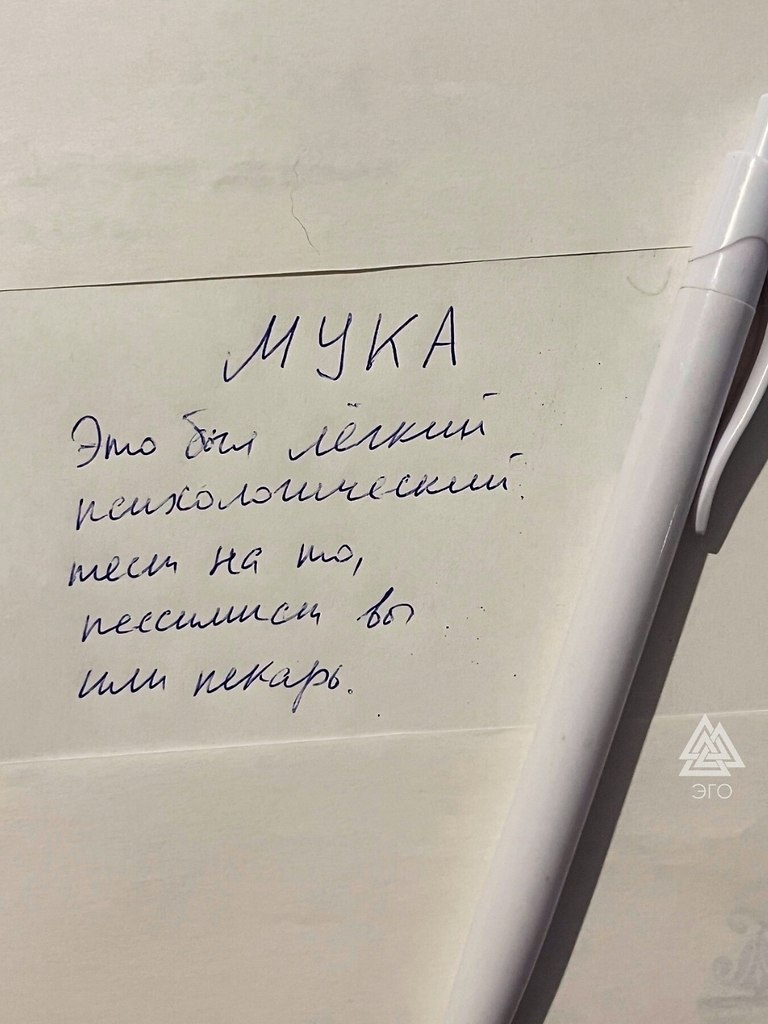 МУКА
Это был лёгкий
психологический
тест на то,
пессимист вы
или пекарь.
ЭГО